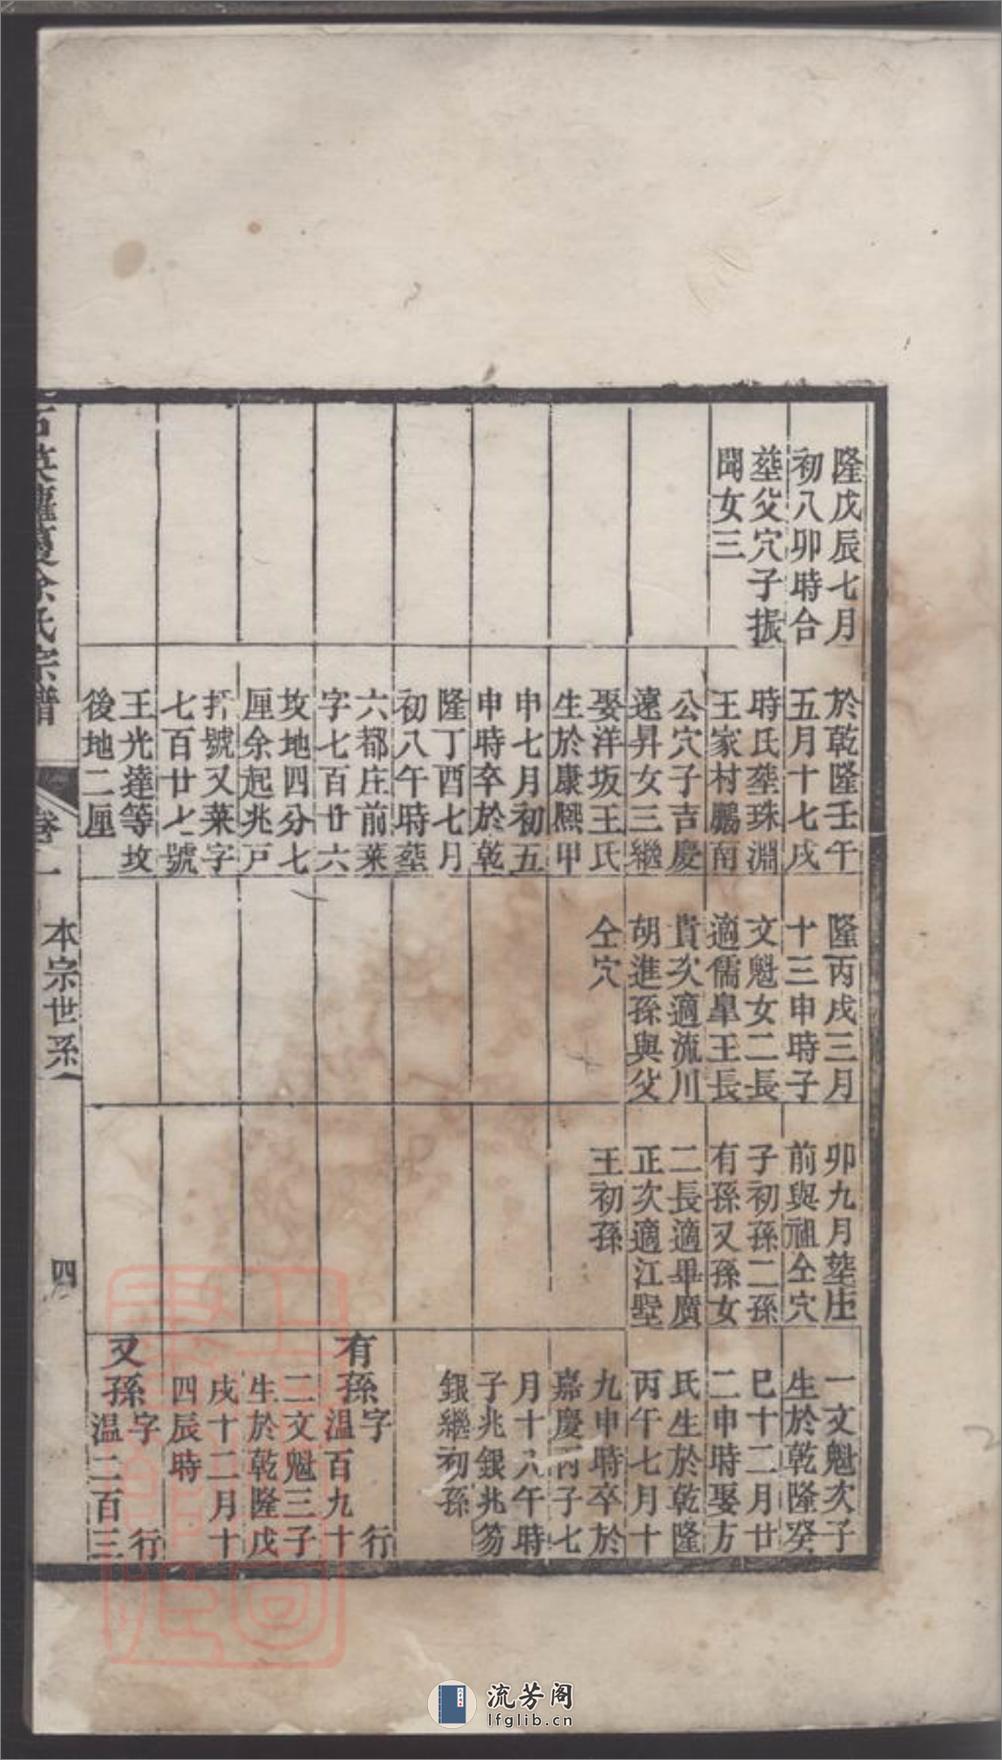 隆戊辰七月
初八卯時合
塟父穴子振
聞女三
於乾隆壬午
五月十七戌
時氏塟珠淵
王家村鵬南
公穴子吉慶
遠昇女三繼
娶洋坂王氏
生於康熙甲
申七月初五
申時卒於乾
隆丁酉七月
初八午時塟
六都庄前菜
字七百廿六
坟地四分七
厘余起兆戸
打號又菜字
七百廿七號
王光達等坟
後地二厘
隆丙戌三月
十三申時子
文魁女二長
適儒皐王長
貴次適流川
胡進孫與父
仝穴
卯九月塟庄
前與祖仝穴
子初孫二孫
有孫又孫女
二長適畢廣
正次適江墅
王初孫
一文魁次子
生於乾隆癸
巳十二月廿
二申時娶方
氏生於乾隆
丙午七月十
九申時卒於
嘉慶丙子七
月十八午時
子兆銀兆笏
銀繼初孫
有孫字 行
温百九十
二文魁三子
生於乾隆戊
戌十二月十
四辰時
又孫字 行
温二百三
余氏宗譜
卷一
本宗世系
四
流芳阁
lfglib.cn